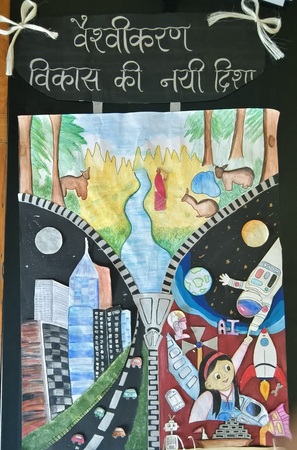 वैश्वीकरण
विकास की नयी दिशा
AI